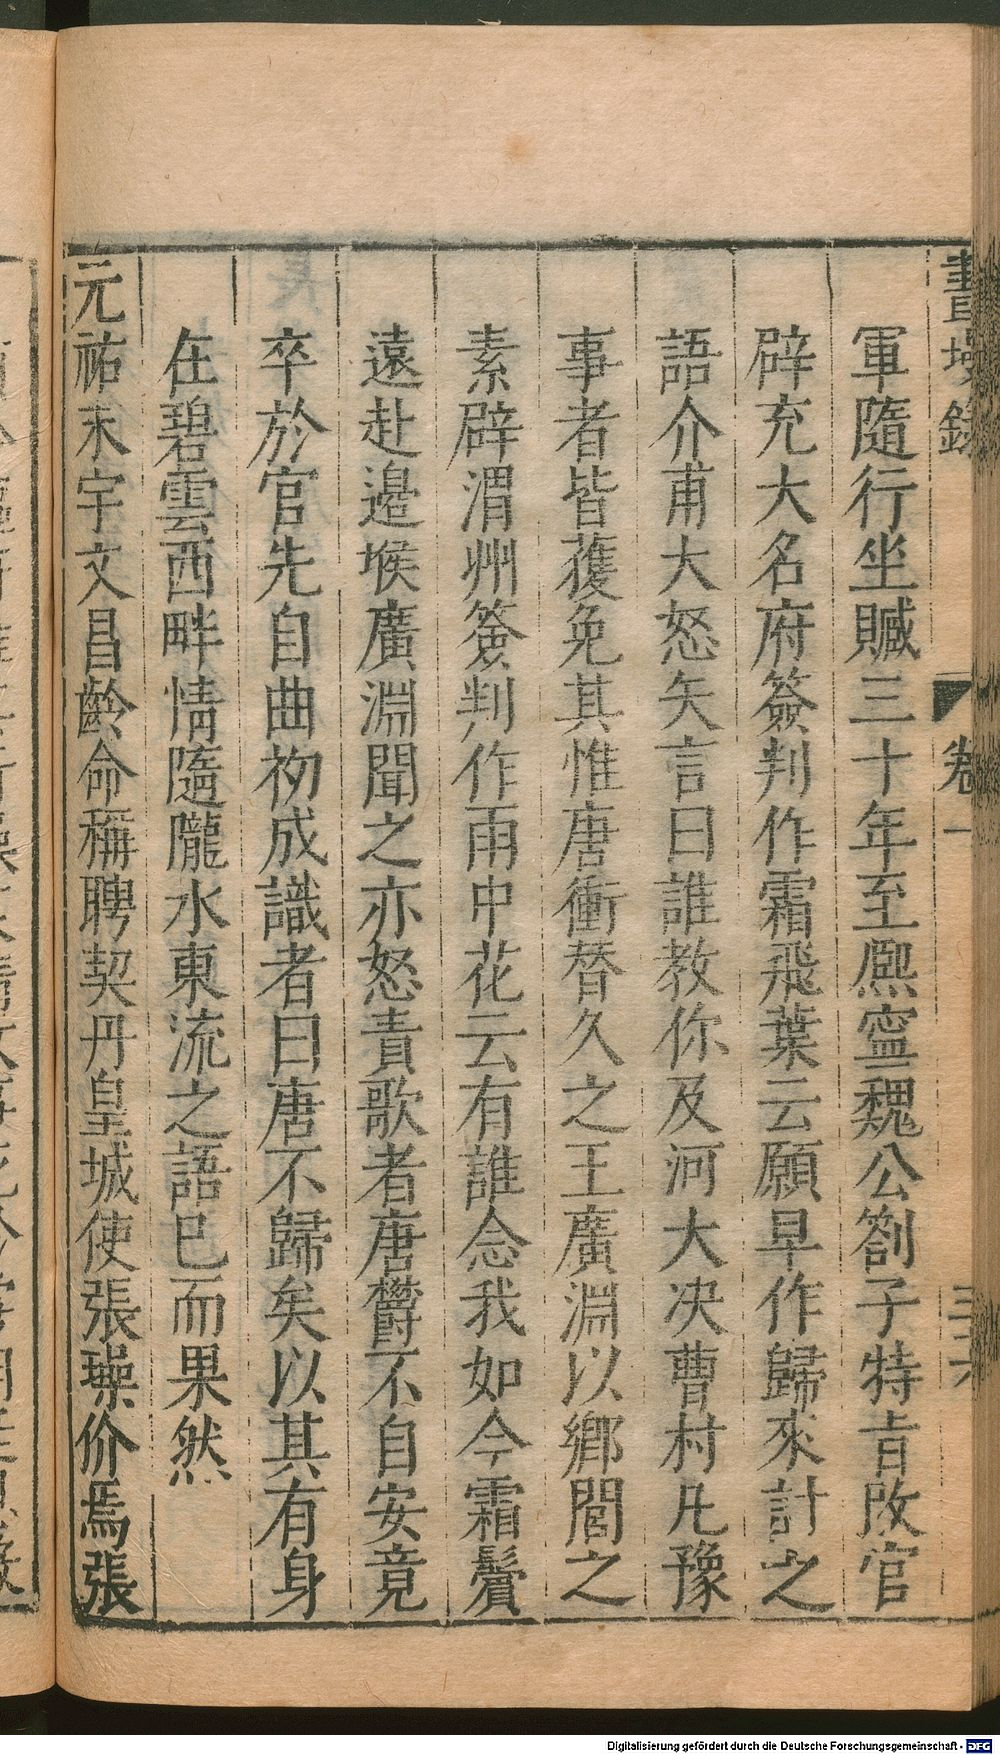 畫墁錄
卷一
軍隨行坐贓三十年至熙寧魏公劄子特旨改官
辟充大名府簽判作霜飛葉云願早作歸來計之
語介甫大怒矢言曰誰教你及河大决曹村凡豫
事者皆蒦免其惟唐衝替久之王廣淵以鄉閭之
素辟渭州簽判作雨中花云有誰念我如今霜鬢
遠赴邊堠廣淵聞之亦怒責歌者唐欝不自安竟
卒於官先自曲初成識者曰唐不歸矣以其有身
在碧雲西畔情隨隴水東流之語已而果然
元祐末宇文昌齡命稱聘契丹皇城使張璪价焉張
Digitalisierung gefördert durch die Deutsche Forschungsgemeinschaft - DFG